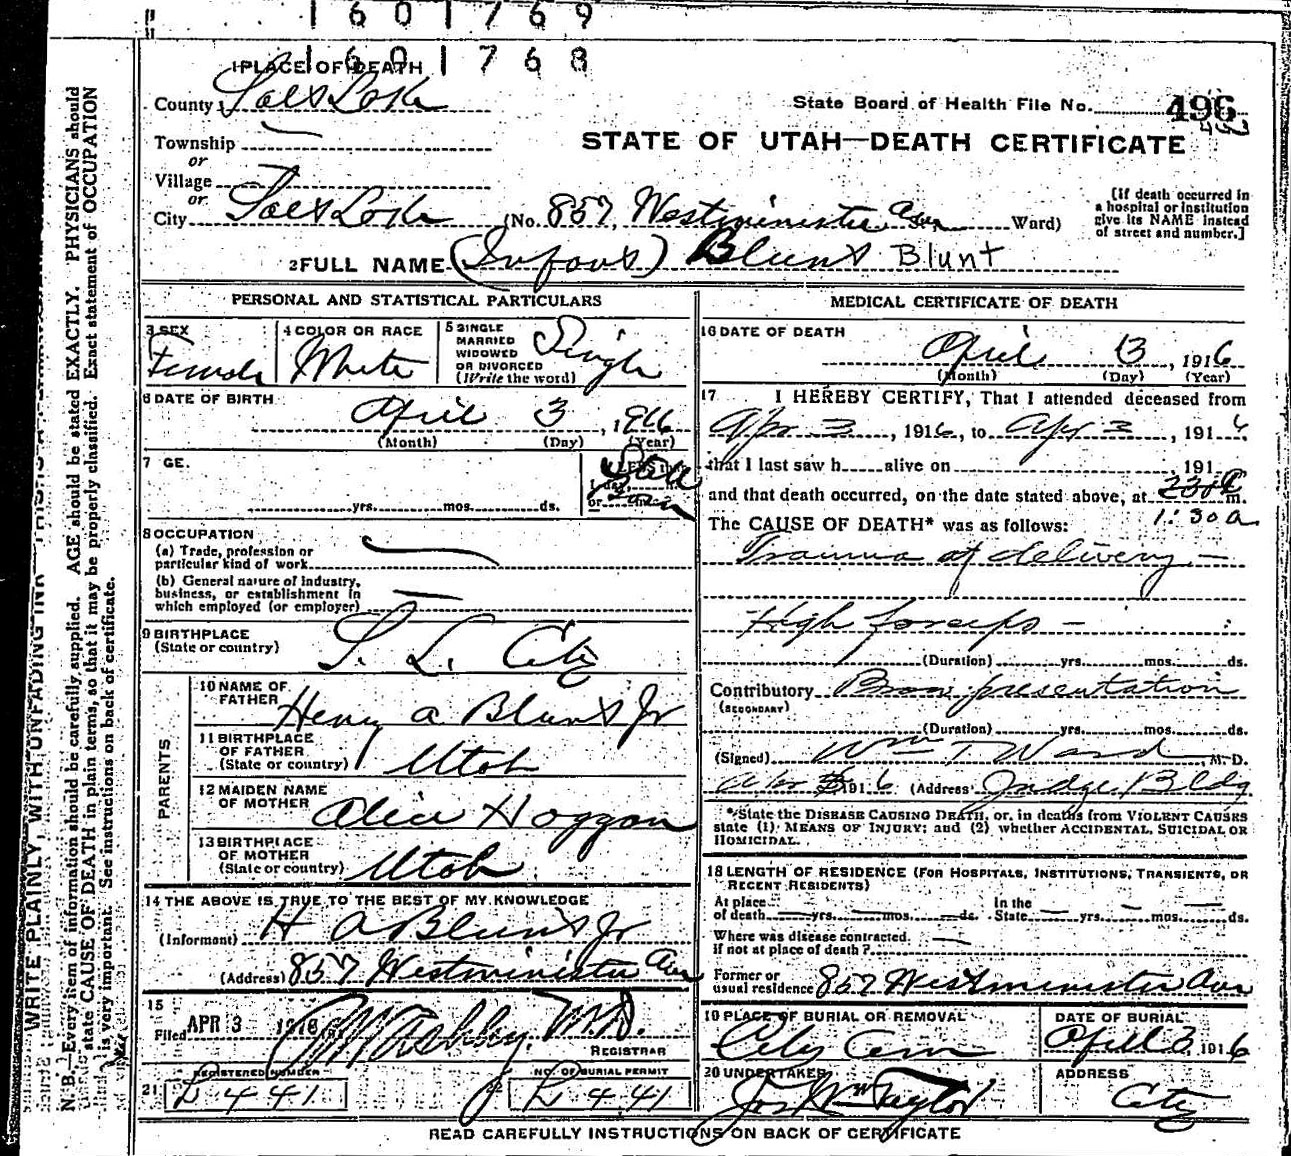 1601769
1601768
1 PLACE OF DEATH
County Salt Lake
State Board of Health File No. 496
STATE OF UTAH—DEATH CERTIFICATE
Township
or
Village
or
City Salt Lake (No. 857, Westminister Ave Ward)
[If death occurred in
a hospital or institution
give its NAME instead
of street and number.]
2 FULL NAME (Infant) Blunt Blunt
PERSONAL AND STATISTICAL PARTICULARS
3 SEX
Female
4 COLOR OR RACE
White
5 SINGLE
MARRIED
WIDOWED
OR DIVORCED
(Write the word)
Single
6 DATE OF BIRTH
April 3, 1916
(Month) (Day) (Year)
7 GE.
yrs. mos. ds.
8 OCCUPATION
(a) Trade, profession or
particular kind of work
(b) General nature of industry,
business, or establishment in
which employed (or employer)
9 BIRTHPLACE
(State or country)
S. L. City
PARENTS
10 NAME OF
FATHER
Henry A Blunt Jr
11 BIRTHPLACE
OF FATHER
(State or country)
Utah
12 MAIDEN NAME
OF MOTHER
Alice Hoggan
13 BIRTHPLACE
OF MOTHER
(State or country)
Utah
14 THE ABOVE IS TRUE TO THE BEST OF MY KNOWLEDGE
(Informant) H A Blunt Jr
(Address) 857 Westminister Ave
15
Filed APR 3 1916 Ashby, M.D.
REGISTRAR
21 REGISTERED NUMBER
L 441
NO. OF BURIAL PERMIT
L 441
MEDICAL CERTIFICATE OF DEATH
16 DATE OF DEATH
April 3, 1916
(Month) (Day) (Year)
17 I HEREBY CERTIFY, That I attended deceased from
Apr 3, 1916, to Apr 3, 1916.
that I last saw h alive on , 191
and that death occurred, on the date stated above, at m.
1:30 a
The CAUSE OF DEATH* was as follows:
Trauma of delivery —
High forceps —
(Duration) yrs. mos. ds.
Contributory Brow presentation
(SECONDARY)
(Duration) yrs. mos. ds.
(Signed) Wm T Ward, M. D.
1916 (Address) Judge Bldg
*State the DISEASE CAUSING DEATH, or, in deaths from VIOLENT CAUSES
state (1) MEANS OF INJURY; and (2) whether ACCIDENTAL, SUICIDAL OR
HOMICIDAL.
18 LENGTH OF RESIDENCE (FOR HOSPITALS, INSTITUTIONS, TRANSIENTS, OR
RECENT RESIDENTS)
At place In the
of death yrs. mos. ds. State yrs. mos. ds.
Where was disease contracted.
if not at place of death?
Former or
usual residence 857 Westminister Ave
19 PLACE OF BURIAL OR REMOVAL
City Cem
DATE OF BURIAL
April 3 1916
20 UNDERTAKER
Jos Wm Taylor
ADDRESS
City
READ CAREFULLY INSTRUCTIONS ON BACK OF CERTIFICATE
WRITE PLAINLY, WITH UNFADING INK
N. B.—Every item of information should be carefully supplied. AGE should be stated EXACTLY. PHYSICIANS should
state CAUSE OF DEATH in plain terms, so that it may be properly classified. Exact statement of OCCUPATION
is very important. See instructions on back of certificate.